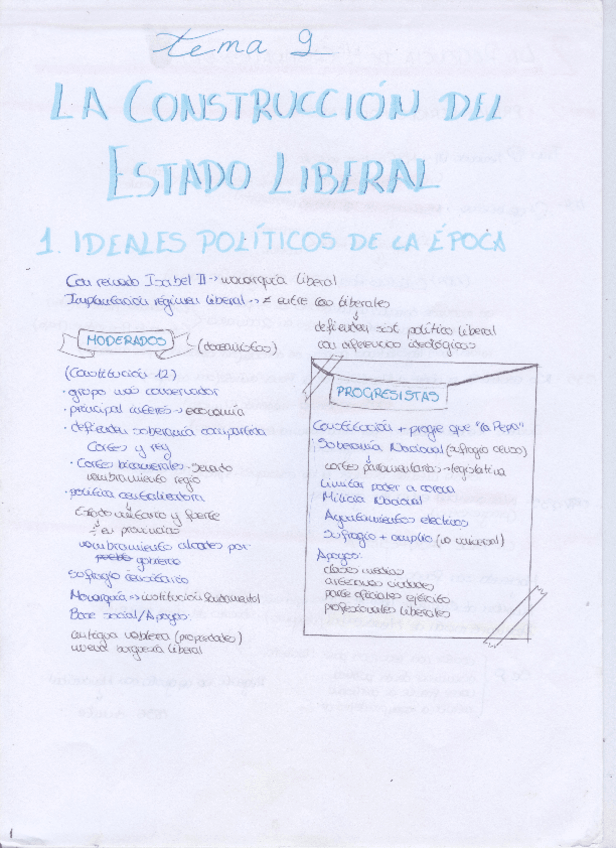 tema 9
LA CONSTRUCCIÓN DEL
ESTADO LIBERAL
1. IDEALES POLÍTICOS DE LA ÉPOCA
Con reinado Isabel II → monarquía liberal
Implantación régimen liberal → ≠ entre los liberales
↓
defienden sist. político liberal
con diferencias ideológicas
MODERADOS (doceañistas)
(Constitución 12)
· grupo más conservador
· principal interés → economía
· defienden soberanía compartida
Cortes y rey
· Cortes bicamerales - senado
nombramiento regio
· política centralizadora
↓
Estado unitario y fuerte
÷ en provincias
nombramiento alcaldes por
pueblo gobierno
Sufragio censitario
Monarquía → institución fundamental
Base social/Apoyos:
antigua nobleza (propiedades)
nueva burguesía liberal
PROGRESISTAS
Constitución + progre que "la Pepa"
Soberanía Nacional (sufragio censo)
↓
cortes parlamentarias → legislativa
Limitar poder a corona
Milicia Nacional
Ayuntamientos electivos
Sufragio + amplio (no universal)
Apoyos:
clases medias
artesanos ciudades
parte oficiales ejército
profesionales liberales
1